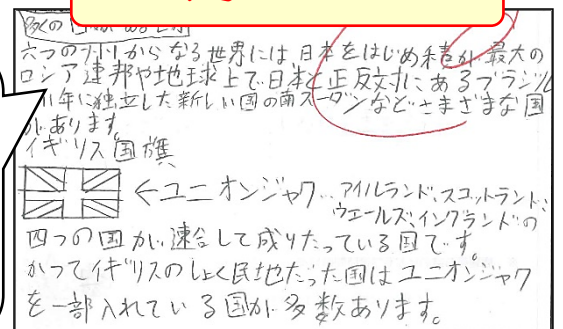 多くの国がある世界
六つの州からなる世界には日本をはじめ面積が最大の
ロシア連邦や地球上で日本と正反対にあるブラジル
11年に独立した新しい国の南スーダンなどさまざまな国
があります。
イギリス国旗
←ユニオンジャク…アイルランド、スコットランド、
ウェールズ、イングランドの
四つの国が連合して成りたっている国です。
かつてイギリスのしょく民地だった国はユニオンジャク
を一部入れている国が多数あります。